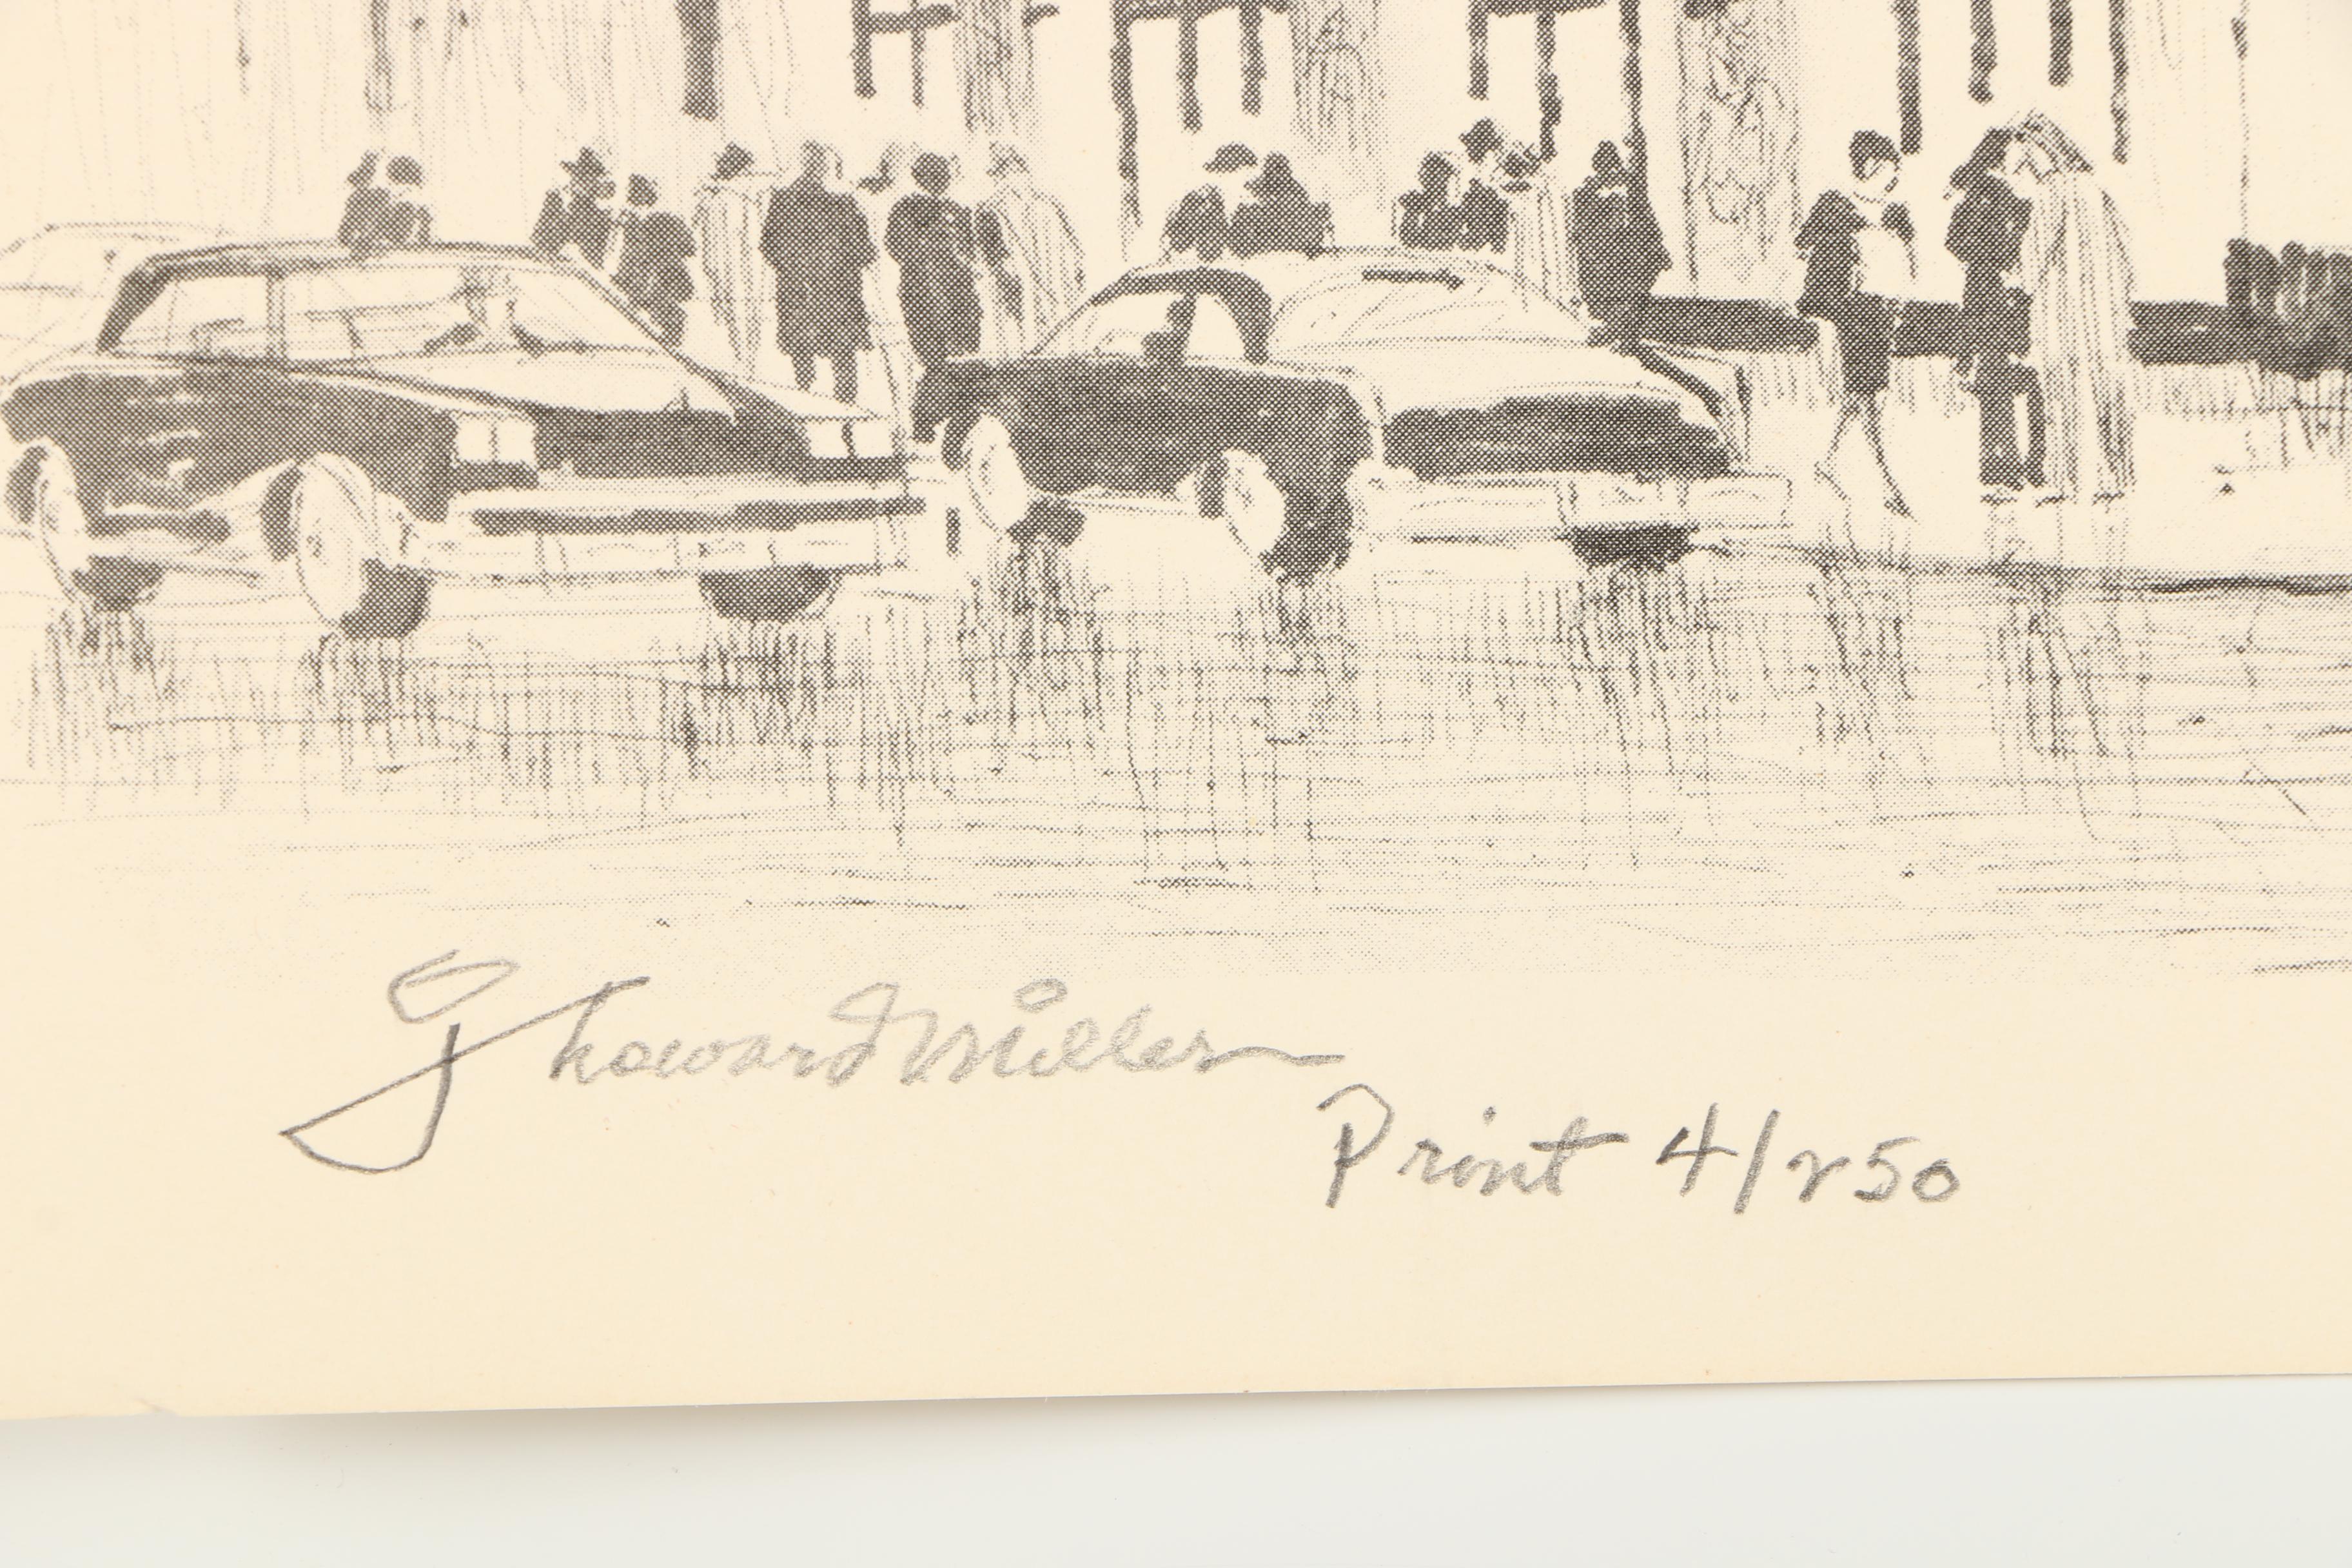 J Howard Miller
Print 4/250